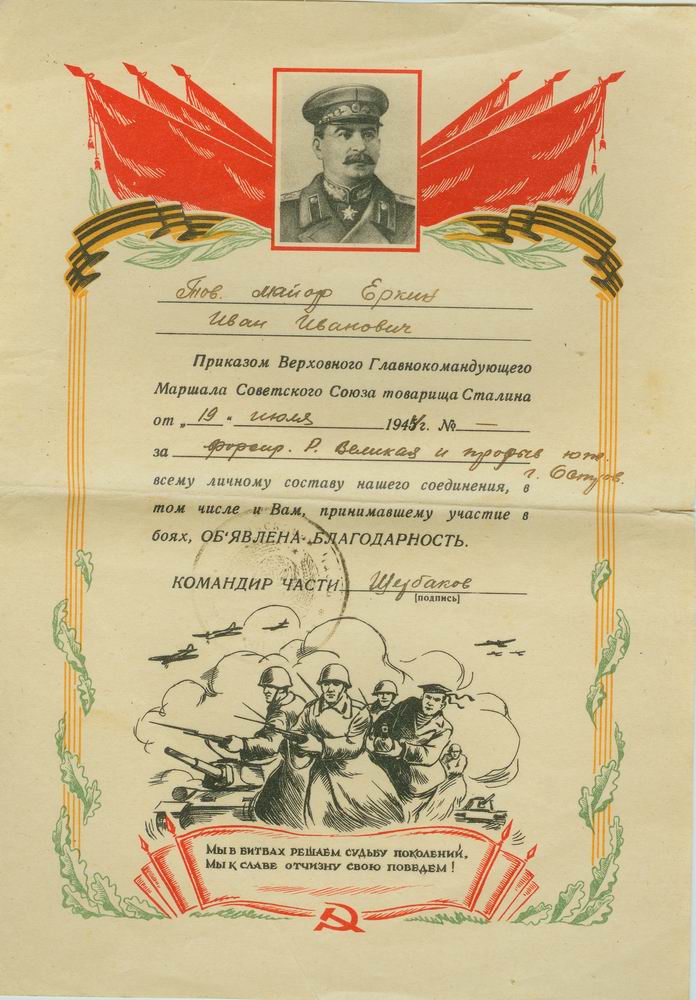 Тов. майор Еркин
Иван Иванович
Приказом Верховного Главнокомандующего
Маршала Советского Союза товарища Сталина
от „ 19 " июля 1944г. № —
за форсир. р. Великая и прорыв юж.
г. Остров.
всему личному составу нашего соединения, в
том числе и Вам, принимавшему участие в
боях, ОБ'ЯВЛЕНА БЛАГОДАРНОСТЬ.
КОМАНДИР ЧАСТИ Щербаков
[подпись]
Мы в битвах решаем судьбу поколений,
Мы к славе отчизну свою поведем!